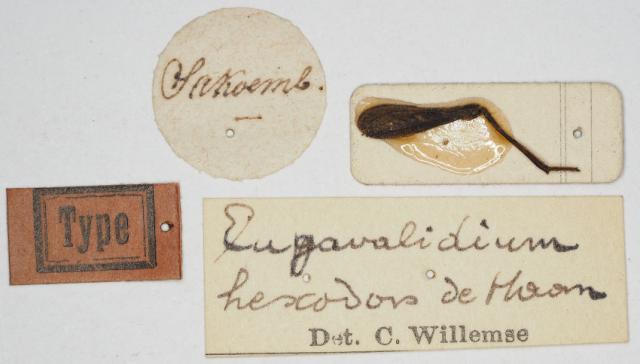 Sakoemb.
Type
Eugavalidium
hexodon de Haan
Det. C. Willemse